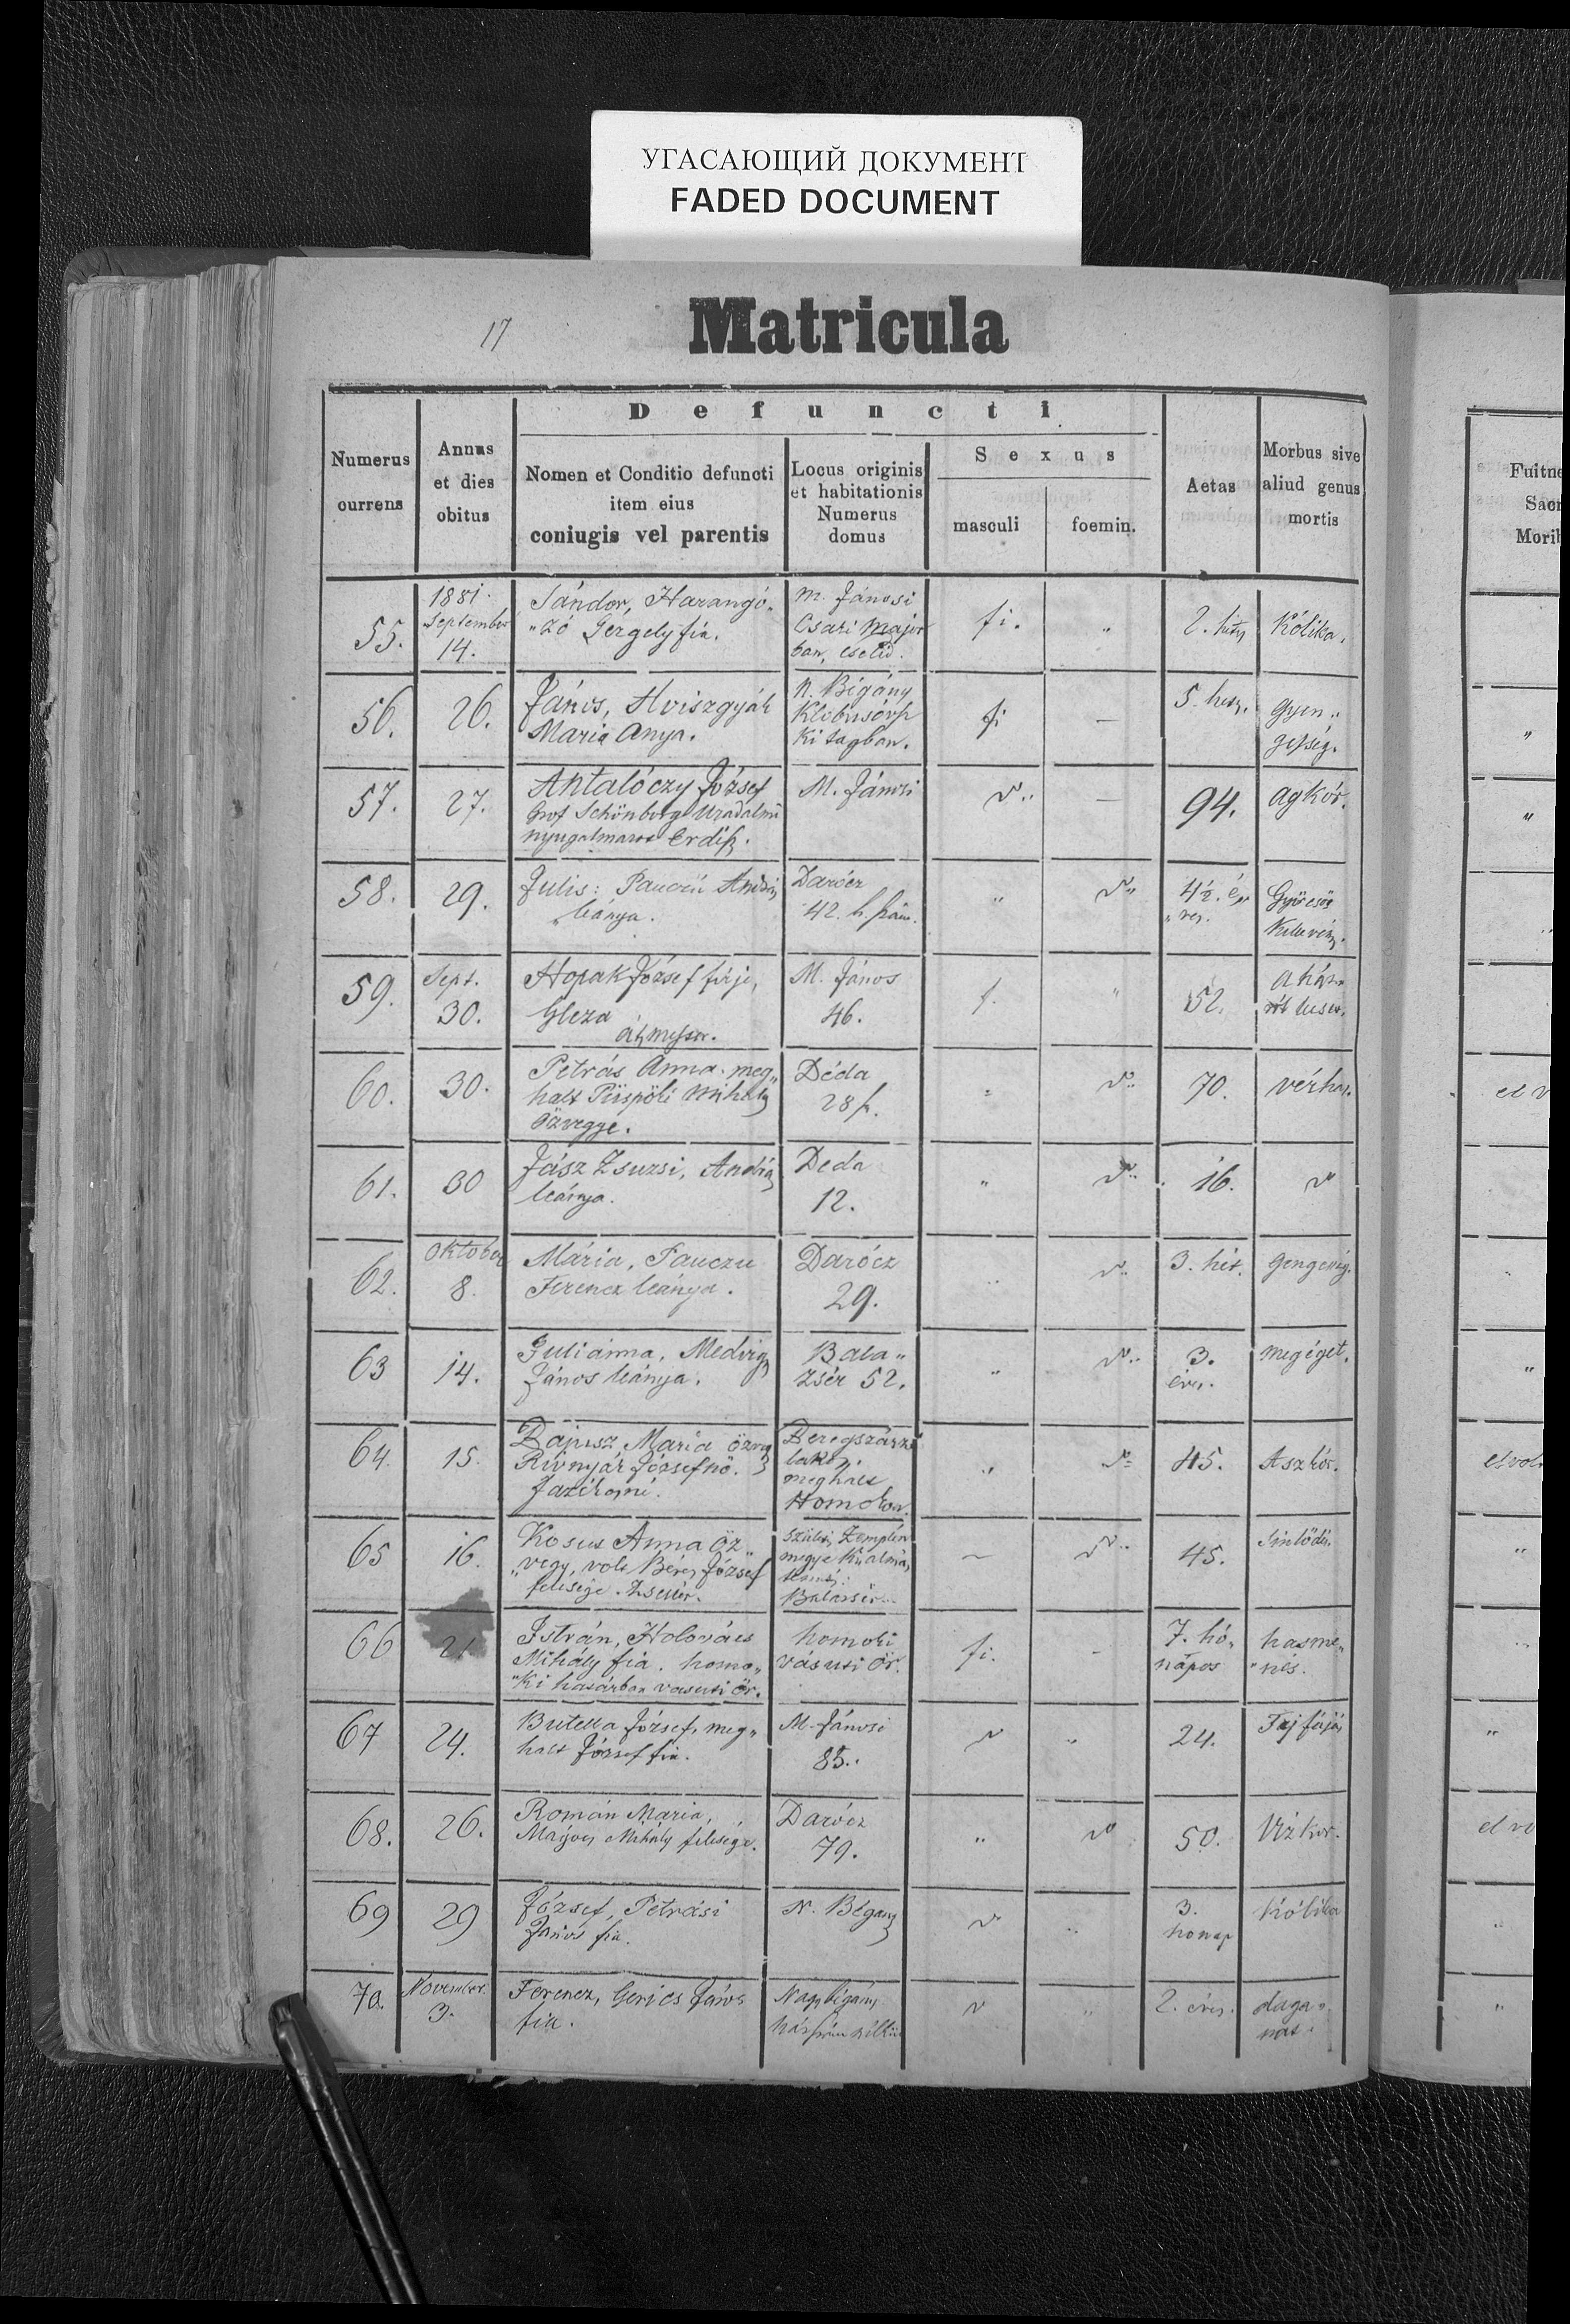 УГАСАЮЩИЙ ДОКУМЕНТ
FADED DOCUMENT
17
Matricula
Defuncti
Numerus
currens
Annus
et dies
obitus
Nomen et Conditio defuncti
item eius
coniugis vel parentis
Locus originis
et habitationis
Numerus
domus
Sexus
masculi
foemin.
Aetas
Morbus sive
aliud genus
mortis
Fuitne
Sacr
Morib
55.
1881.
September
14.
Sándor, Harangó„
„zó Gergely fia.
M. Jánosi
Csari major
ban, cseléd.
fi.
„
2. hetes
Kólika.
56.
26.
János,
Maria Anya.
N. Bigány
ki tagban.
fi
—
5. hetes.
gyen„
geség.
„
57.
27.
Antalóczy József
Grof Schönborg Uradalmi
nyugalmazot Erdész.
M. Jánosi
—
94.
agkór.
„
58.
29.
Julis: Andrá
leánya.
Darócz
42. h. szám.
„
4½. é„
„ves.
59.
Sept.
30.
Hopak József férje,
Gleza
M. János
46.
f.
„
52.
a ház„
60.
30.
Petrás Anna. meg„
halt Püspöki Mihály
özvegye.
Déda
28 sz.
„
70.
vérhas.
el v
61.
30
Jász Zsuzsi, András
leánya.
Deda
12.
„
16.
62.
Oktober
8.
Mária, Fauczu
Ferencz leánya.
Darócz
29.
„
3. hét.
gengeség.
63
14.
Juliánna, Medvigy
János leánya.
Bala„
zsér 52.
„
3.
éves.
megéget.
„
64.
15.
Bajusz Maria özvegy
Rivnyák Józsefnö.
fazékasné.
Beregszászi
lakos,
meghalt
Homokon.
„
45.
Aszkór.
el vol
65
16.
Kosus Anna öz„
„vegy, volt Béres József
felesége. Zsellér.
Zemplén
megye
Balazsér
45.
„
66
21
István, Holovács
Mihály fia. homo„
„ki határban vasuti őr.
homoki
vásuti Őr.
fi.
-
7. hó„
nápos
hasme„
„nés.
67
24.
Butella József, meg„
halt József fia.
M. Jánosi
85.
„
24.
Fej fájás
„
68.
26.
Román Maria,
Mihály felesége.
Darócz
79.
„
50.
Vizkor.
el vo
69
29
József, Petrási
János fia.
N. Bégany
3.
honap
Kólika
70.
November.
3.
Ferencz, Gerics János
fia.
Nagybigány
házszám nélkül
„
2. éves.
daga„
nat.
„